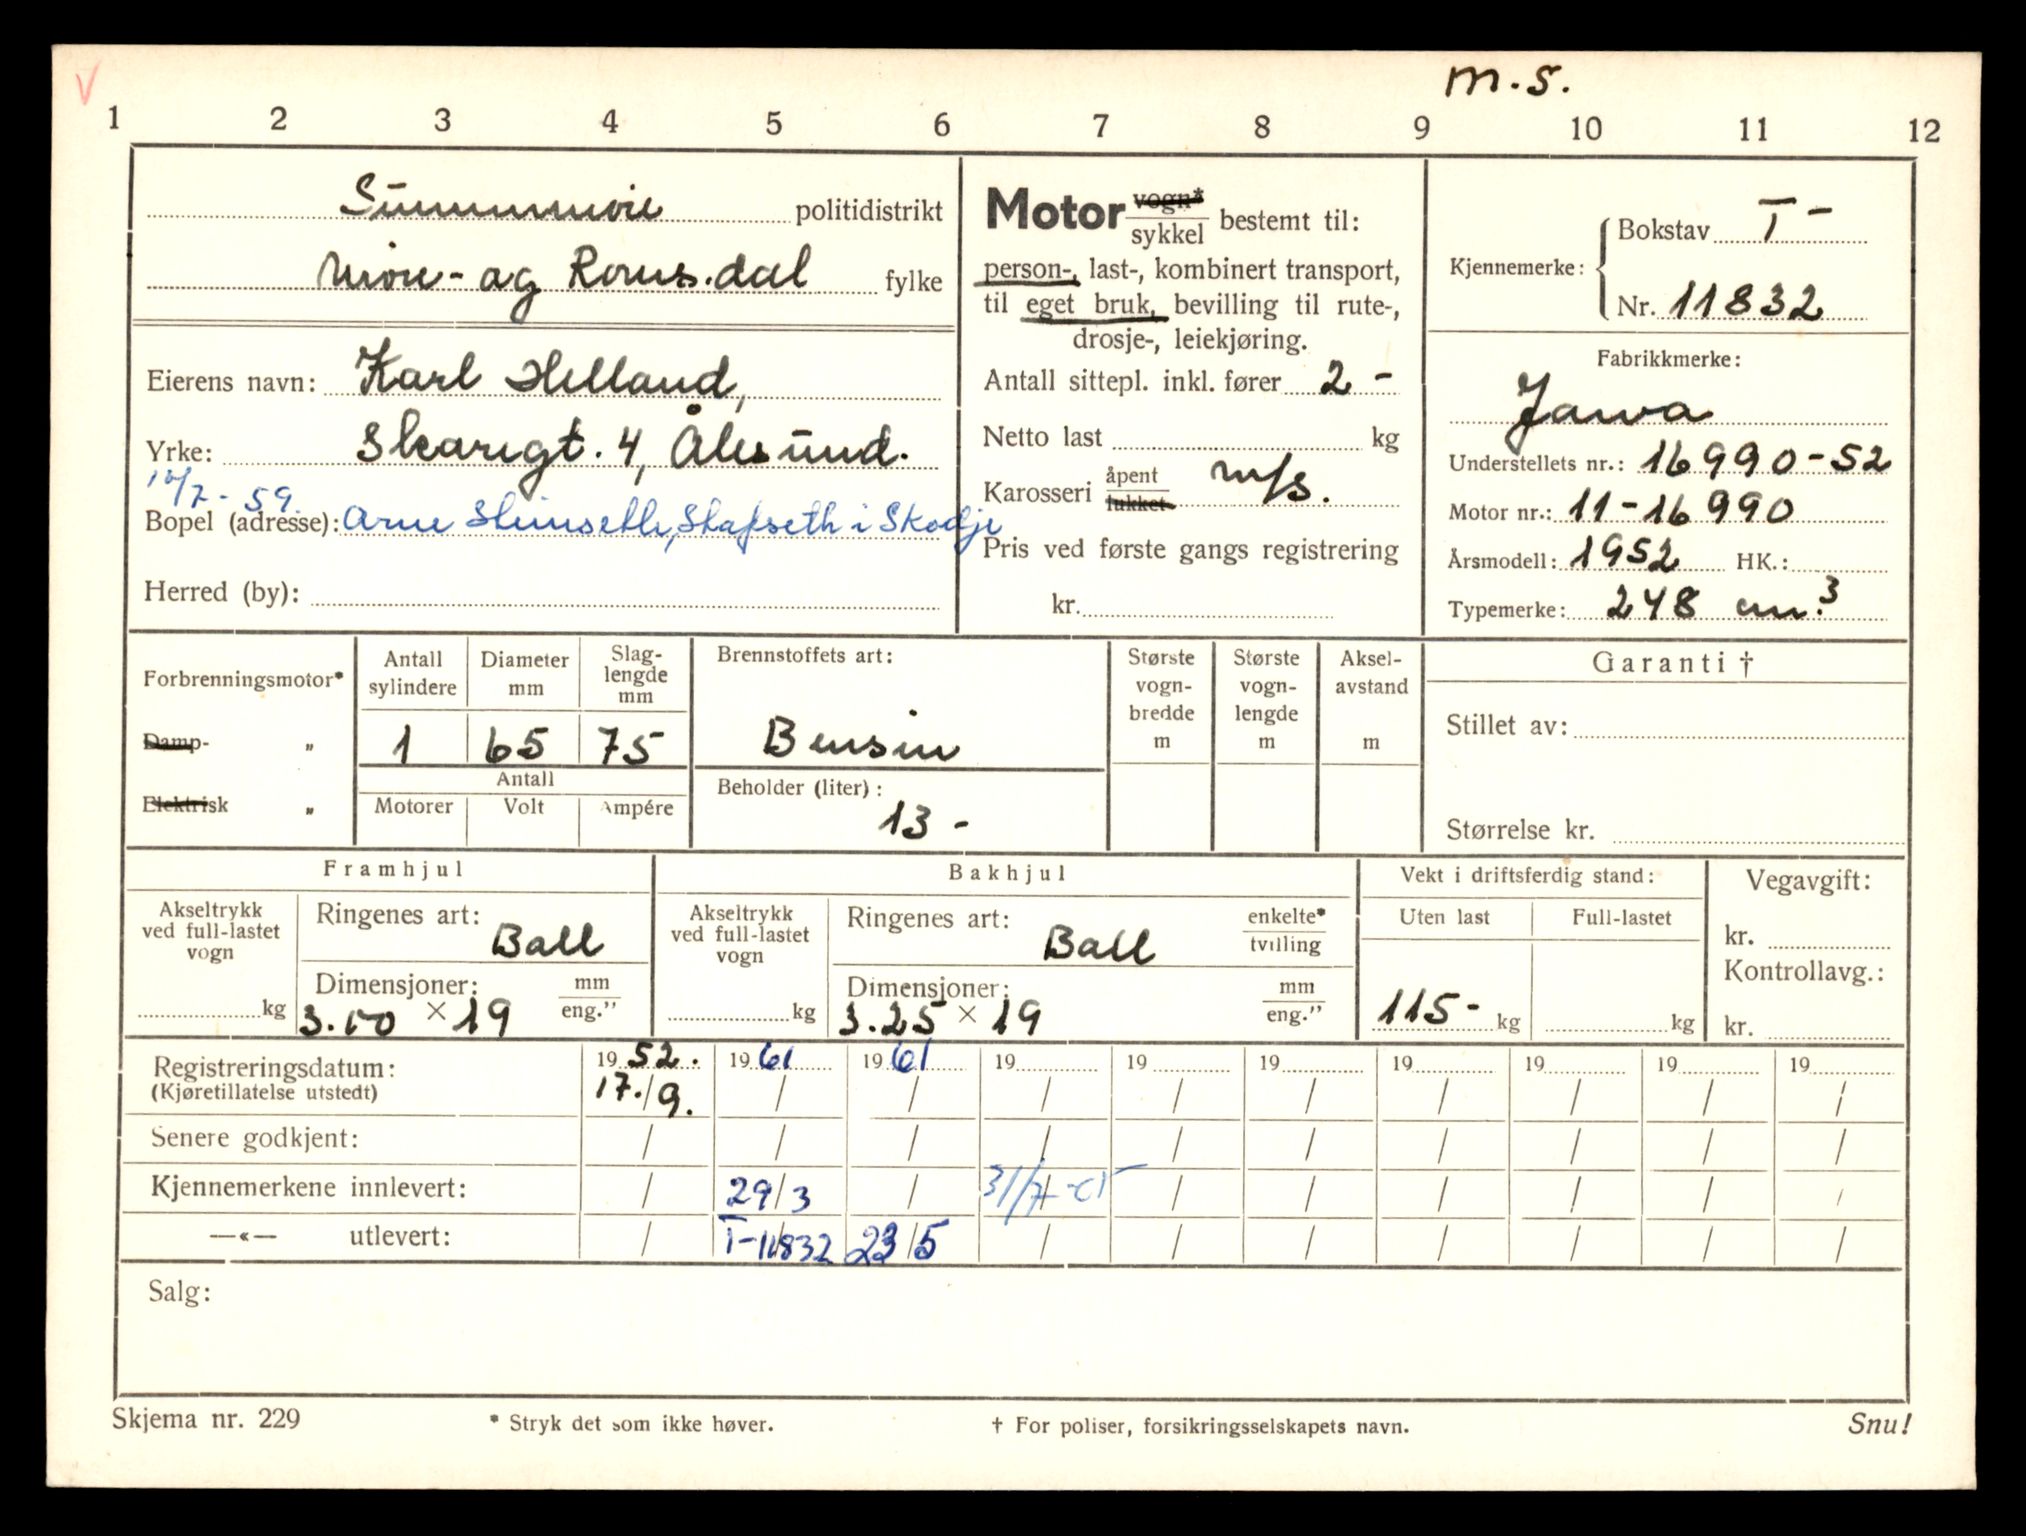 m.s.
1 2 3 4 5 6 7 8 9 10 11 12
Sunnmøre politidistrikt
Møre- og Romsdal fylke
Eierens navn: Karl Helland,
Yrke: Skarigt. 4, Ålesund.
10/7-59.
Bopel (adresse): Arne Steinseth, Stafseth i Skodje
Herred (by):
Motor vogn*
sykkel bestemt til:
person-, last-, kombinert transport,
til eget bruk, bevilling til rute-,
drosje-, leiekjøring.
Antall sittepl. inkl. fører 2 -
Netto last kg
Karosseri åpent
lukket m/s.
Pris ved første gangs registrering
kr.
Kjennemerke: Bokstav T-
Nr. 11832
Fabrikkmerke:
Jawa
Understellets nr.: 16990-52
Motor nr.: 11-16990
Årsmodell: 1952 HK.:
Typemerke: 248 cm.³
Forbrenningsmotor*
Damp- „
Elektrisk „
Antall sylindere
Diameter mm
Slag-
lengde
mm
1 65 75
Antall
Motorer Volt Ampére
Brennstoffets art:
Bensin
Beholder (liter):
13 -
Største
vogn-
bredde
m
Største
vogn-
lengde
m
Aksel-
avstand
m
Garanti †
Stillet av:
Størrelse kr.
Framhjul
Akseltrykk
ved full-lastet
vogn
kg
Ringenes art:
Ball
Dimensjoner: mm
3.00 × 19 eng.”
Bakhjul
Akseltrykk
ved full-lastet
vogn
kg
Ringenes art: enkelte*
Ball tvilling
Dimensjoner: mm
3.25 × 19 eng.”
Vekt i driftsferdig stand:
Uten last Full-lastet
115- kg kg
Vegavgift:
kr.
Kontrollavg.:
kr.
Registreringsdatum: 1952. 1961 1961 19 19 19 19 19 19 19
(Kjøretillatelse utstedt) 17./9. / / / / / / / / /
Senere godkjent: / / / / / / / / / /
Kjennemerkene innlevert: / 29/3 / 31/7- / / / / / /
—«— utlevert: / T-11832 23/5 / / / / / / /
Salg:
Skjema nr. 229
* Stryk det som ikke høver.
† For poliser, forsikringsselskapets navn.
Snu!